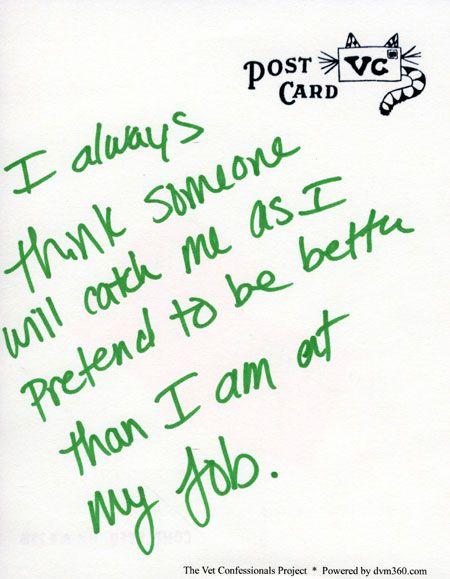 POST
CARD
VC
I always
think someone
will catch me as I
pretend to be better
than I am at
my job.
The Vet Confessionals Project * Powered by dvm360.com